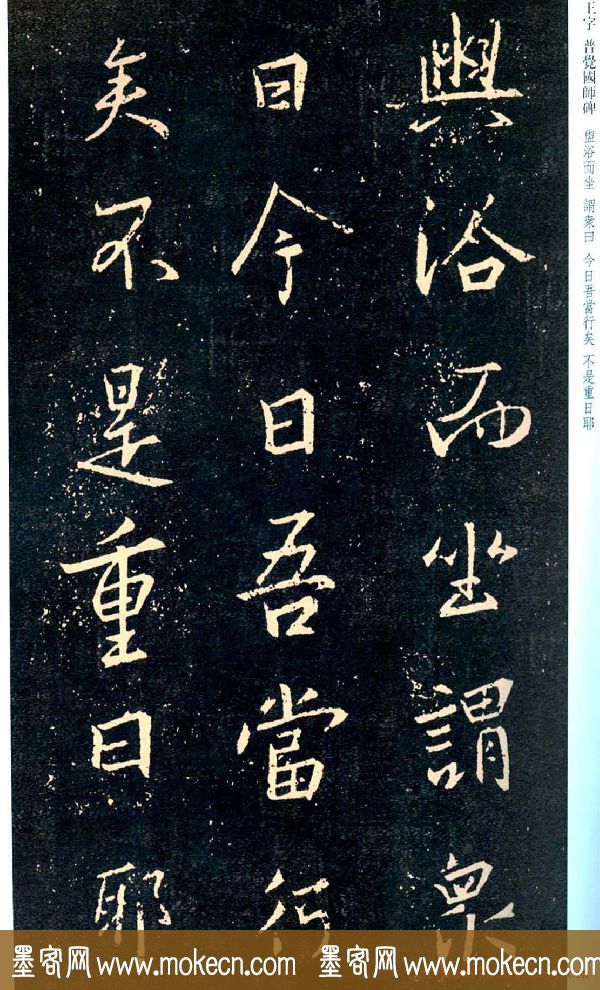 盥浴而坐謂衆
曰今日吾當行
矣不是重日耶
王字 普覺國師碑 盥浴而坐 謂衆曰 今日吾當行矣 不是重日耶
墨客网 www.mokecn.com 墨客网 www.mokecn.com